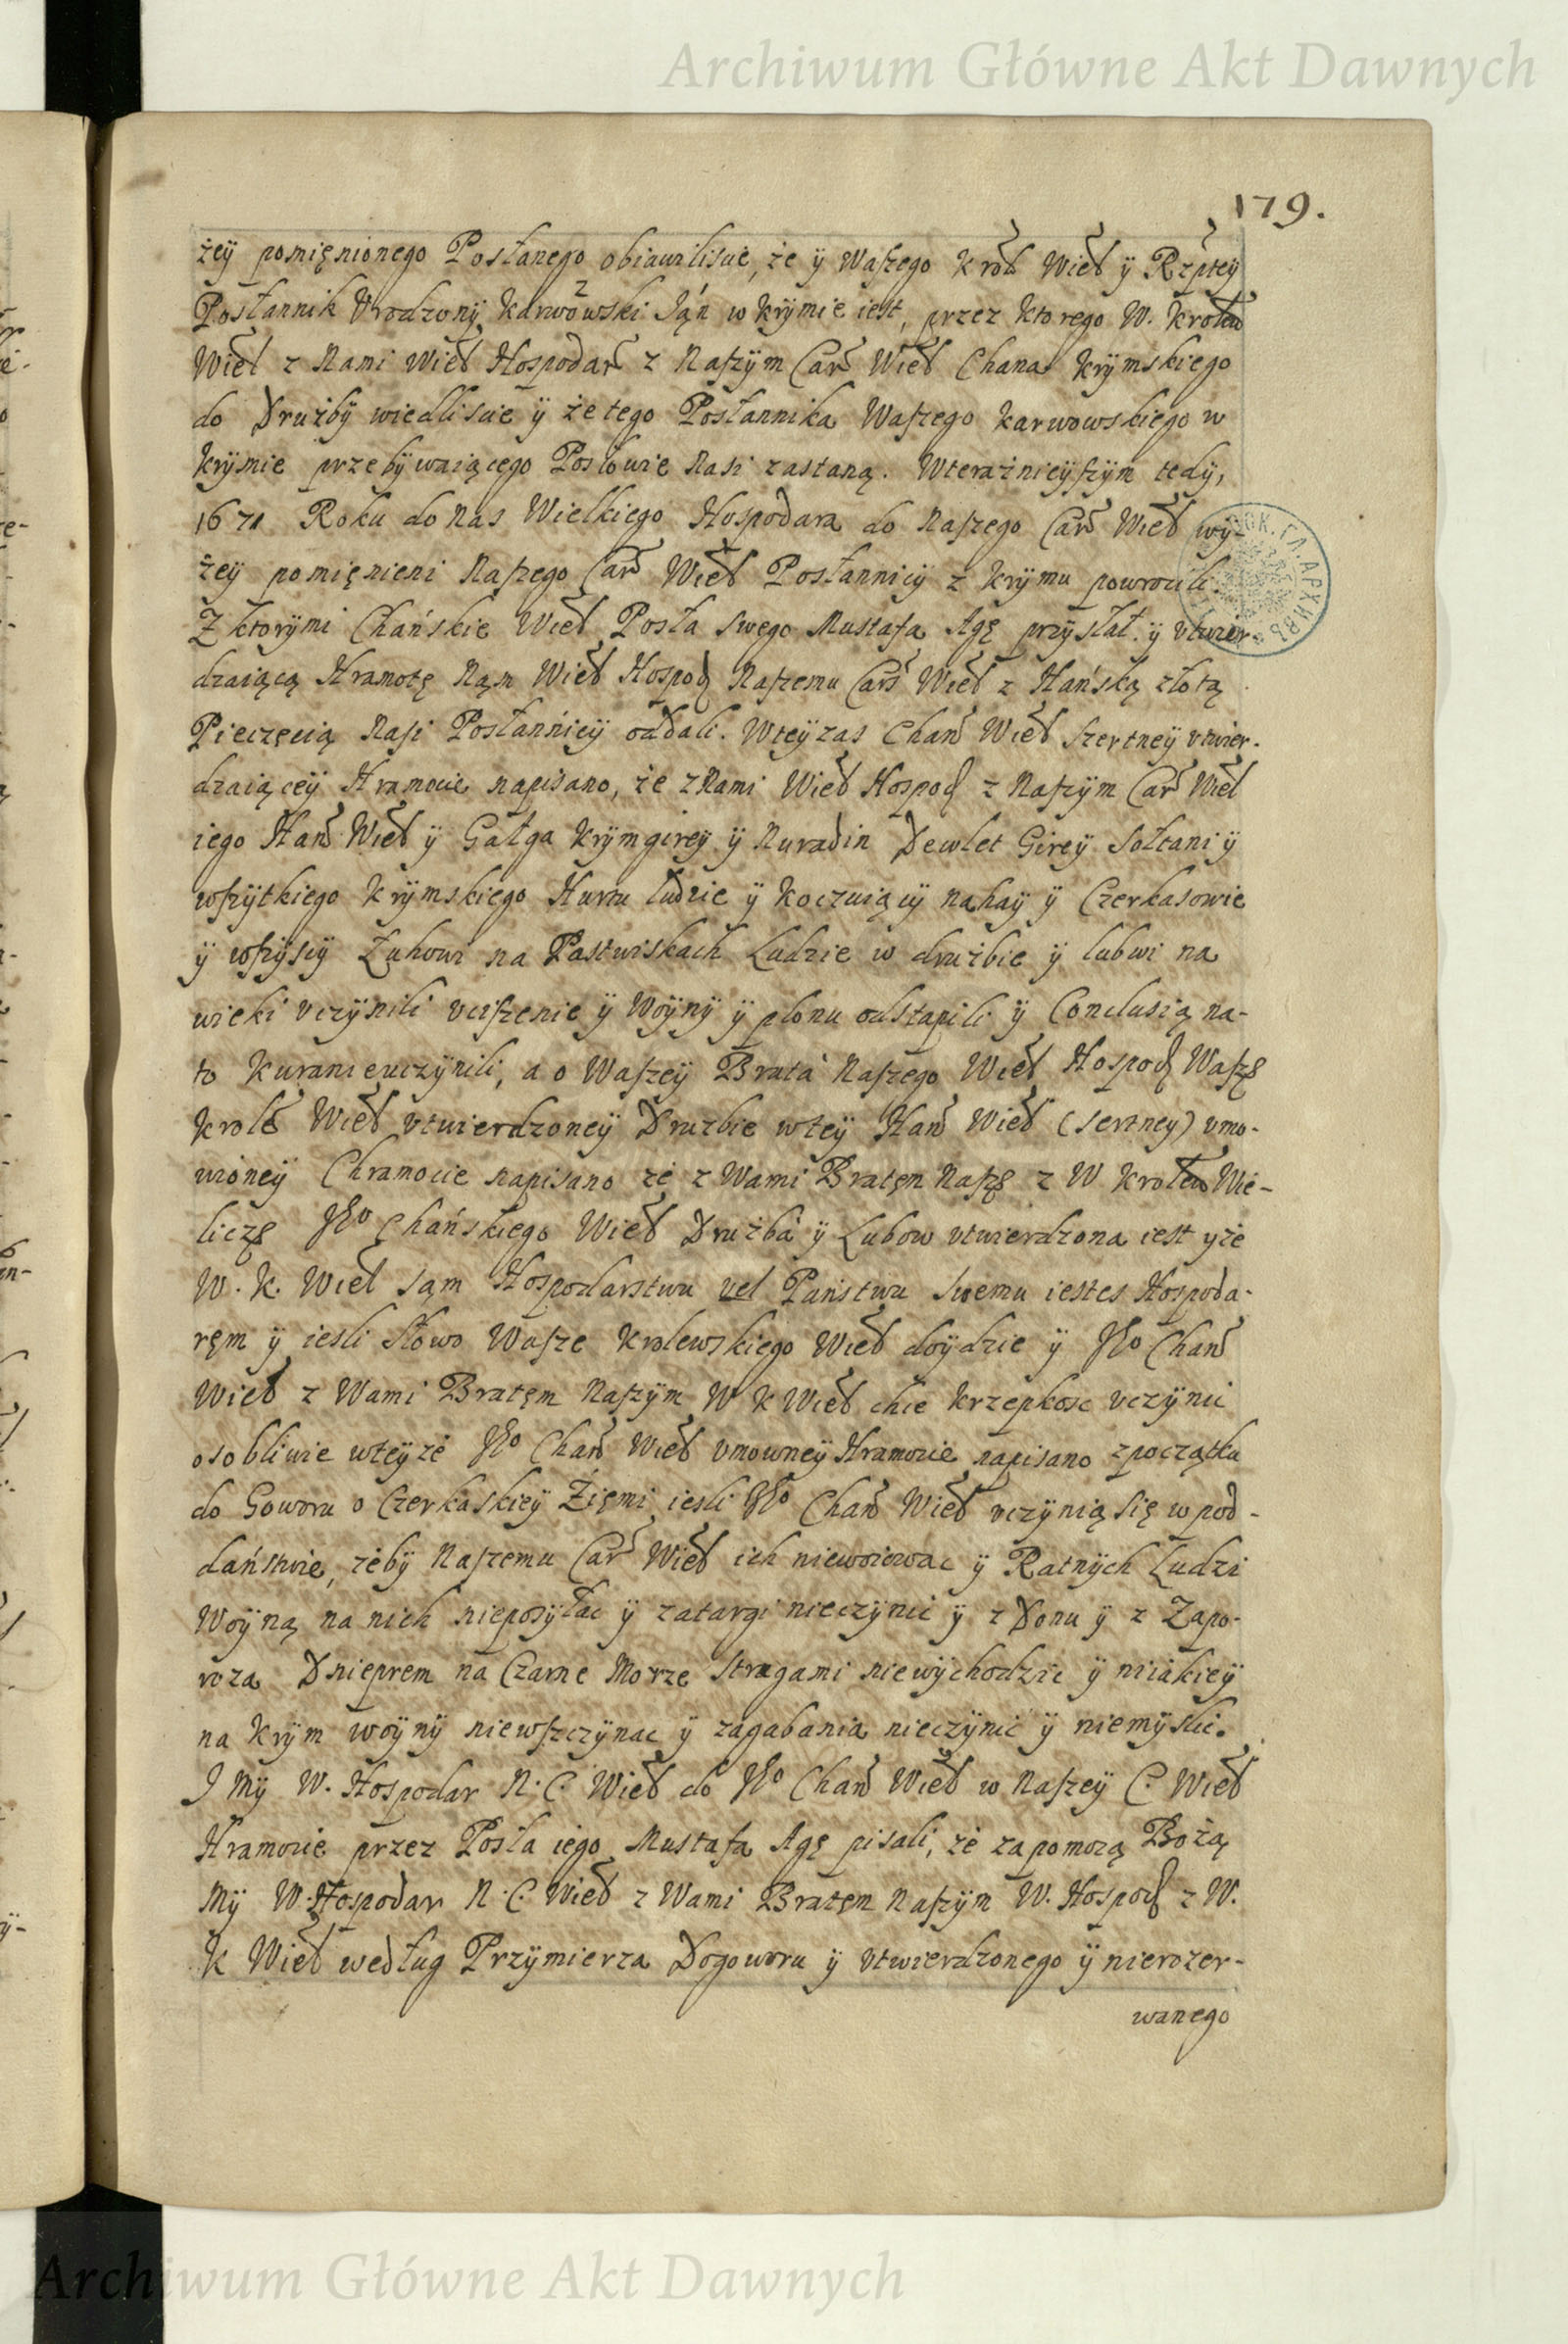 Archiwum Główne Akt Dawnych
179.
żeÿ pomięnionego Posłanego obiawiliscie, że ÿ Waszego Krol Wiel ÿ Rzptey
Posłannik Vrodzonÿ Karwowski Ján w Krÿmie iest, przez ktorego W. Krolew
Wiel z Nami Wiel Hospodar z Naszÿm Car Wiel Chana Krÿmskiego
do Drużbÿ wiedliscie ÿ że tego Posłannika Waszego Karwowskiego w
Krÿmie przebÿwaiącego Posłowie Nasi zastaną. Wteraznieÿszÿm tedÿ,
1671 Roku do Nas Wielkiego Hospodara do Naszego Car Wiel wÿ-
żeÿ pomięnieni Naszego Car Wiel Posłannicÿ z Krÿmu powrocili.
Z ktorÿmi Chańskie Wiel Posła swego Mustafa Agę przÿsłał. ÿ vtwier-
dzaiącą Hramotę Nąm Wiel Hospod Naszemu Cars Wiel z Hańską złotą
Pieczęcią Nasi Posłannicÿ oddali. Wteÿ zas Chan Wiel szertneÿ vtwier-
dzaiąceÿ Hramocie napisano, że z Nami Wiel Hospod z Naszÿm Car Wiel
iego Han Wiel ÿ Gałga Krÿmgireÿ ÿ Nuradin Dewlet Gireÿ Sołtani ÿ
wszÿtkiego Krÿmskiego Hurtu ludzie ÿ Koczuiącÿ nahaÿ ÿ Czerkasowie
ÿ wszÿscÿ Zuhowi na Pastwiskach Ludzie w drużbie ÿ lubwi na
wieki vczÿnili vciszenie ÿ Woÿnÿ ÿ plonu odstąpili ÿ Conclusią na-
to Kuranie vczÿnili, a o Waszeÿ Brata Naszego Wiel Hospod Waszę
Krole Wiel vtwierdzoneÿ Druzbie wteÿ Han Wiel (sertney) vmo-
wioneÿ Chramocie napisano że z Wami Bratęm Naszę z W Krolew Wie-
liczę JEo Chańskiego Wiel Drużba ÿ Lubow vtwierdzona iest ÿ że
W. K. Wiel sąm Hospodarstwu vel Państwu swemu iestes Hospoda-
ręm ÿ iesli Słowo Wasze Krolewskiego Wiel doÿdzie ÿ JEo Chan
Wiel z Wami Bratęm Naszÿm W K Wiel chce krzepkosc vczÿnic
osobliwie wteÿ że JEo Chan Wiel vmowneÿ Hramocie napisano z początku
do Goworu o Czerkaskieÿ Zięmi iesli JEo Chan Wiel vczÿnią się w pod-
dańswie, żebÿ Naszemu Car Wiel ich niewoiewac ÿ Ratnÿch Ludzi
Woÿną na nich nieposÿłac ÿ zatargi nieczÿnic ÿ z Donu ÿ z Zapo-
roza Dnieprem na Czarne Morze strugami niewÿchodzic ÿ niiakieÿ
na Krÿm woÿnÿ niewszczÿnac ÿ zagabania nieczÿnic ÿ niemÿslic.
I Mÿ W. Hospodar N. C. Wiel do JEo Chan Wiel w Naszeÿ C. Wiel
Hramocie przez Posła iego Mustafa Agę pisali, że za pomocą Bożą
Mÿ W. Hospodar N. C. Wiel z Wami Bratęm Naszÿm W. Hospod z W.
K Wiel według Przÿmierza Dogoworu ÿ vtwierdzonego ÿ nierozer-
wanego
Archiwum Główne Akt Dawnych